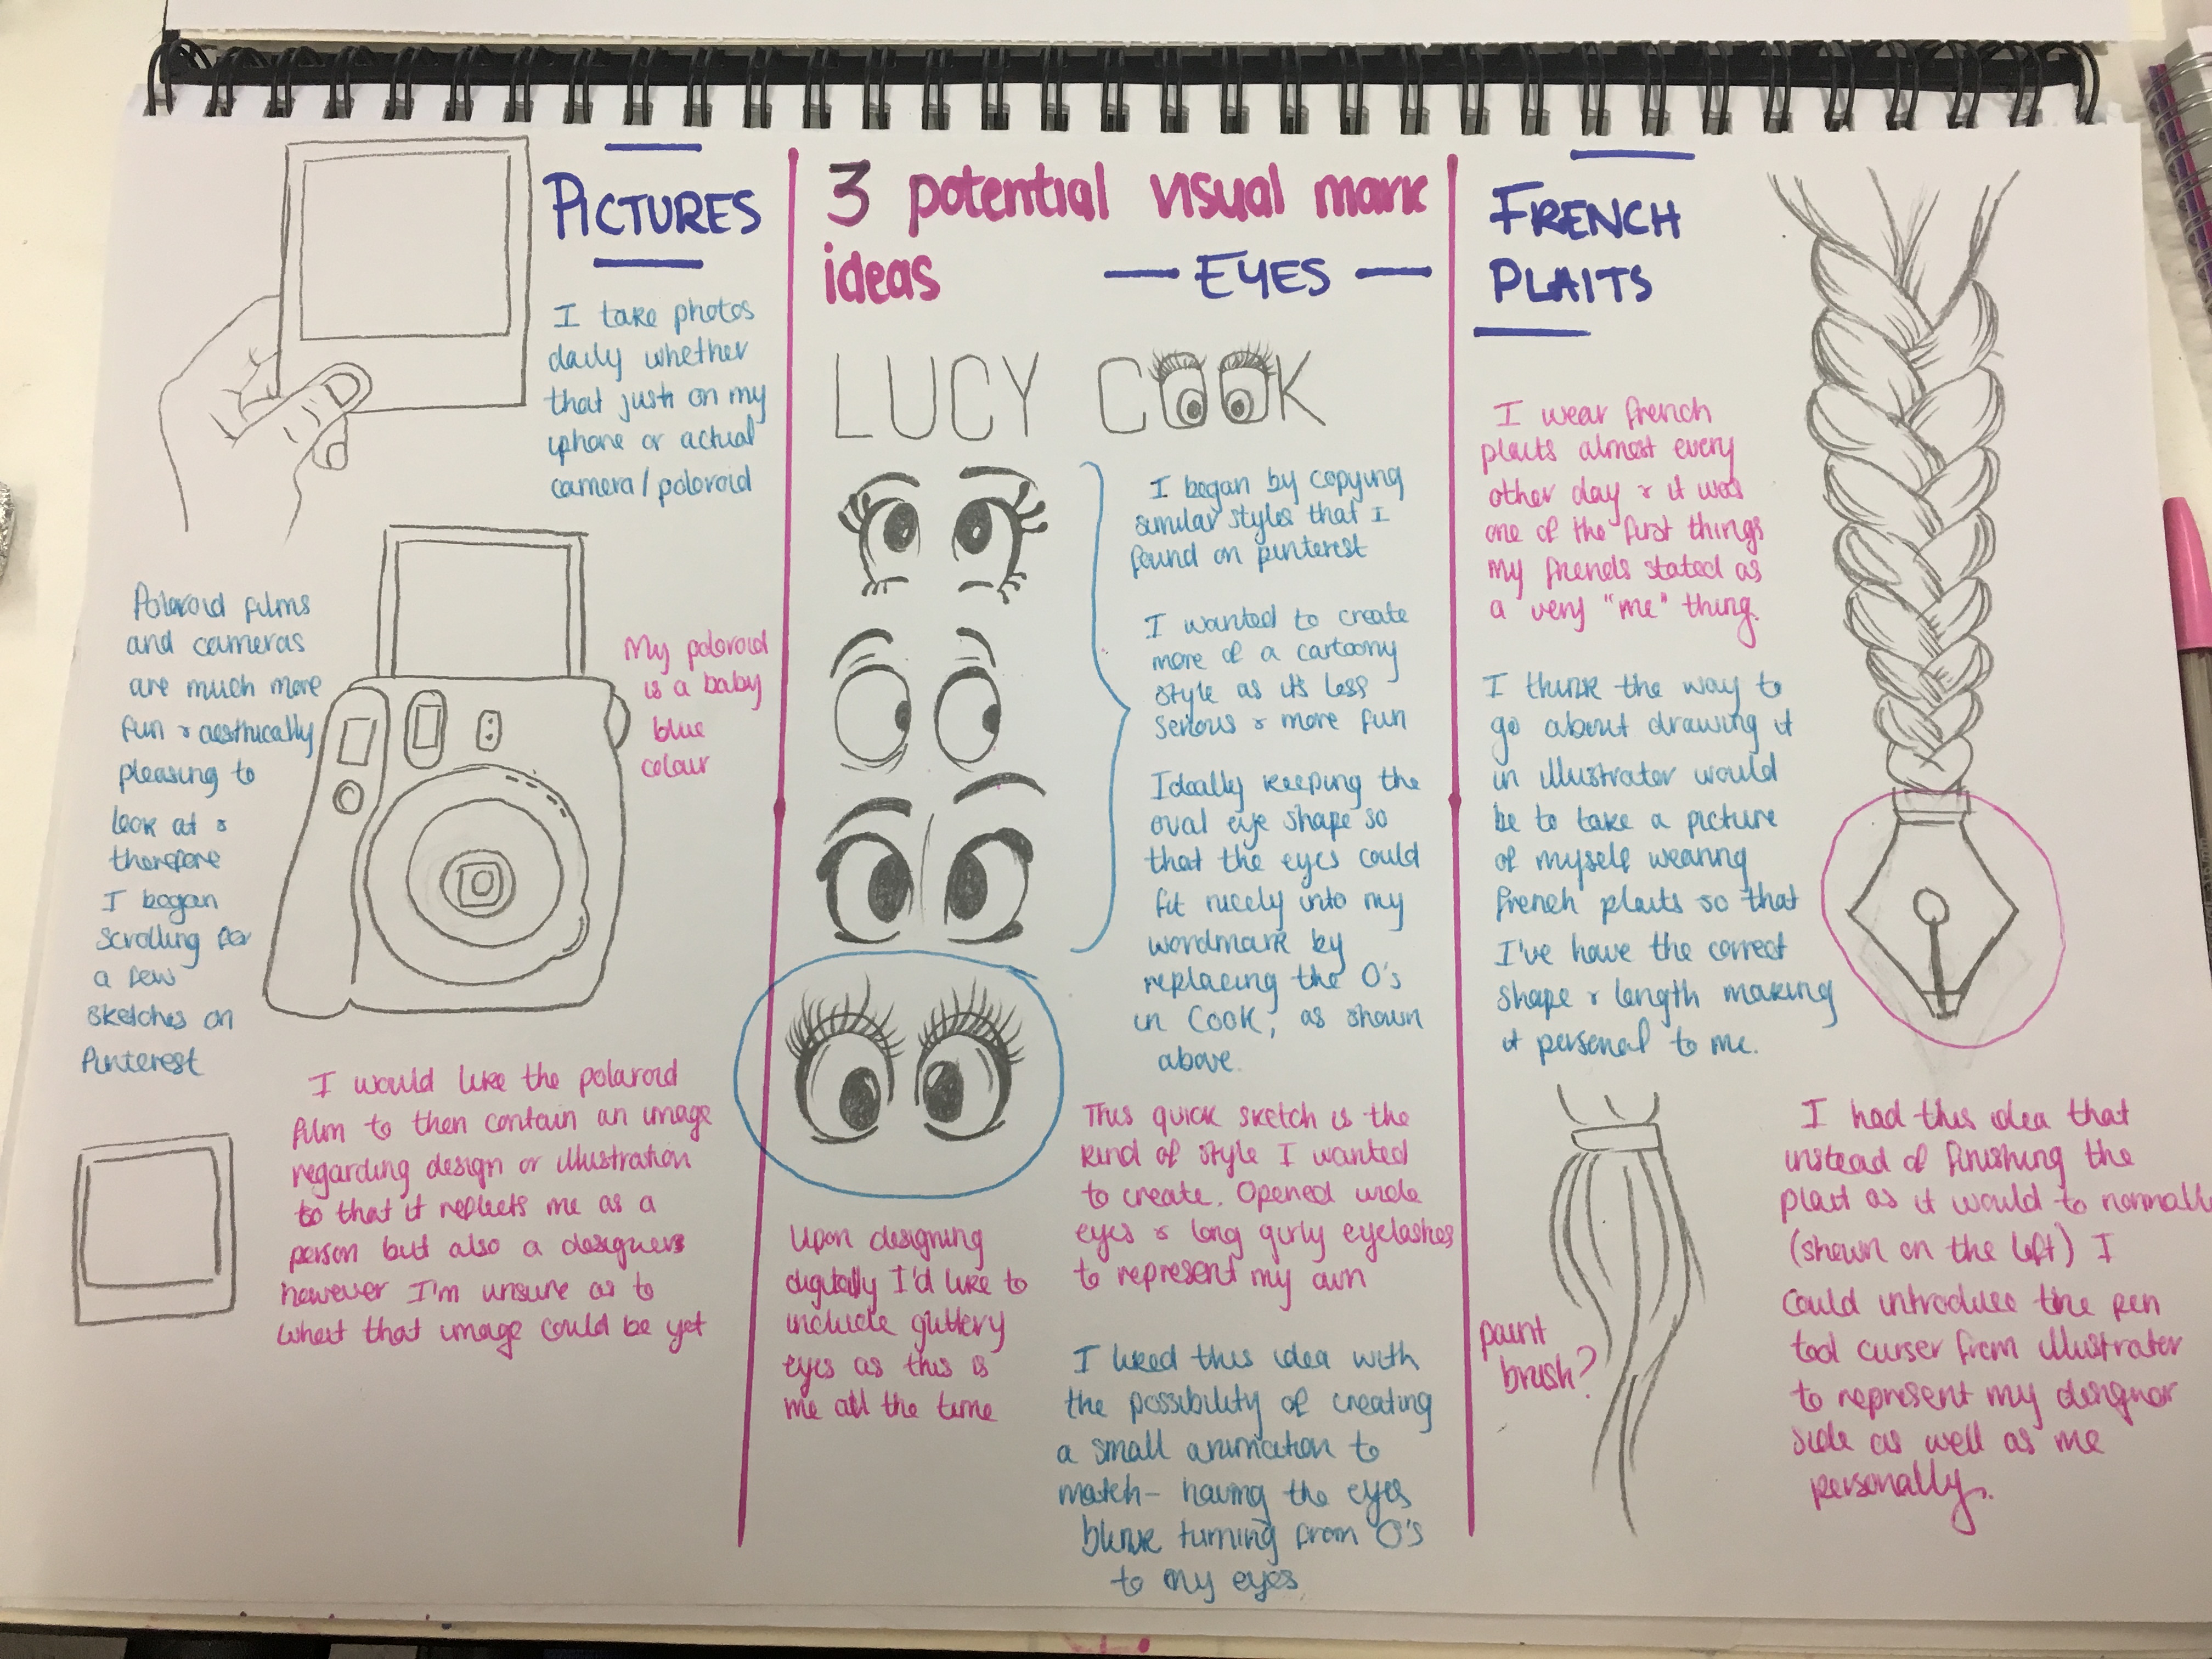 3 potential visual mark
ideas
PICTURES
I take photos
daily whether
that just on my
iphone or actual
camera/poloroid
Poloroid films
and cameras
are much more
fun & aesthically
pleasing to
look at &
therefore
I began
scrolling for
a few
sketches on
Pinterest
My poloroid
is a baby
blue
colour
I would like the polaroid
film to then contain an image
regarding design or illustration
so that it reflects me as a
person but also a designers
however I'm unsure as to
what that image could be yet
— EYES —
LUCY COOK
I began by copying
similar styles that I
found on pinterest
I wanted to create
more of a cartoony
style as it's less
serious & more fun
Ideally keeping the
oval eye shape so
that the eyes could
fit nicely into my
wordmark by
replacing the O's
in Cook, as shown
above.
This quick sketch is the
kind of style I wanted
to create. Opened wide
eyes & long girly eyelashes
to represent my own
Upon designing
digitally I'd like to
include glittery
eyes as this is
me all the time
I liked this idea with
the possibility of creating
a small animation to
match- having the eyes
blink turning from O's
to my eyes
FRENCH
PLAITS
I wear french
plaits almost every
other day & it was
one of the first things
my friends stated as
a very "me" thing.
I think the way to
go about drawing it
in illustrator would
be to take a picture
of myself wearing
french plaits so that
I've have the correct
shape & length making
it personal to me.
paint
brush?
I had this idea that
instead of finishing the
plait as it would to normally
(shown on the left) I
could introduce the pen
tool curser from illustrator
to represent my designer
side as well as me
personally.